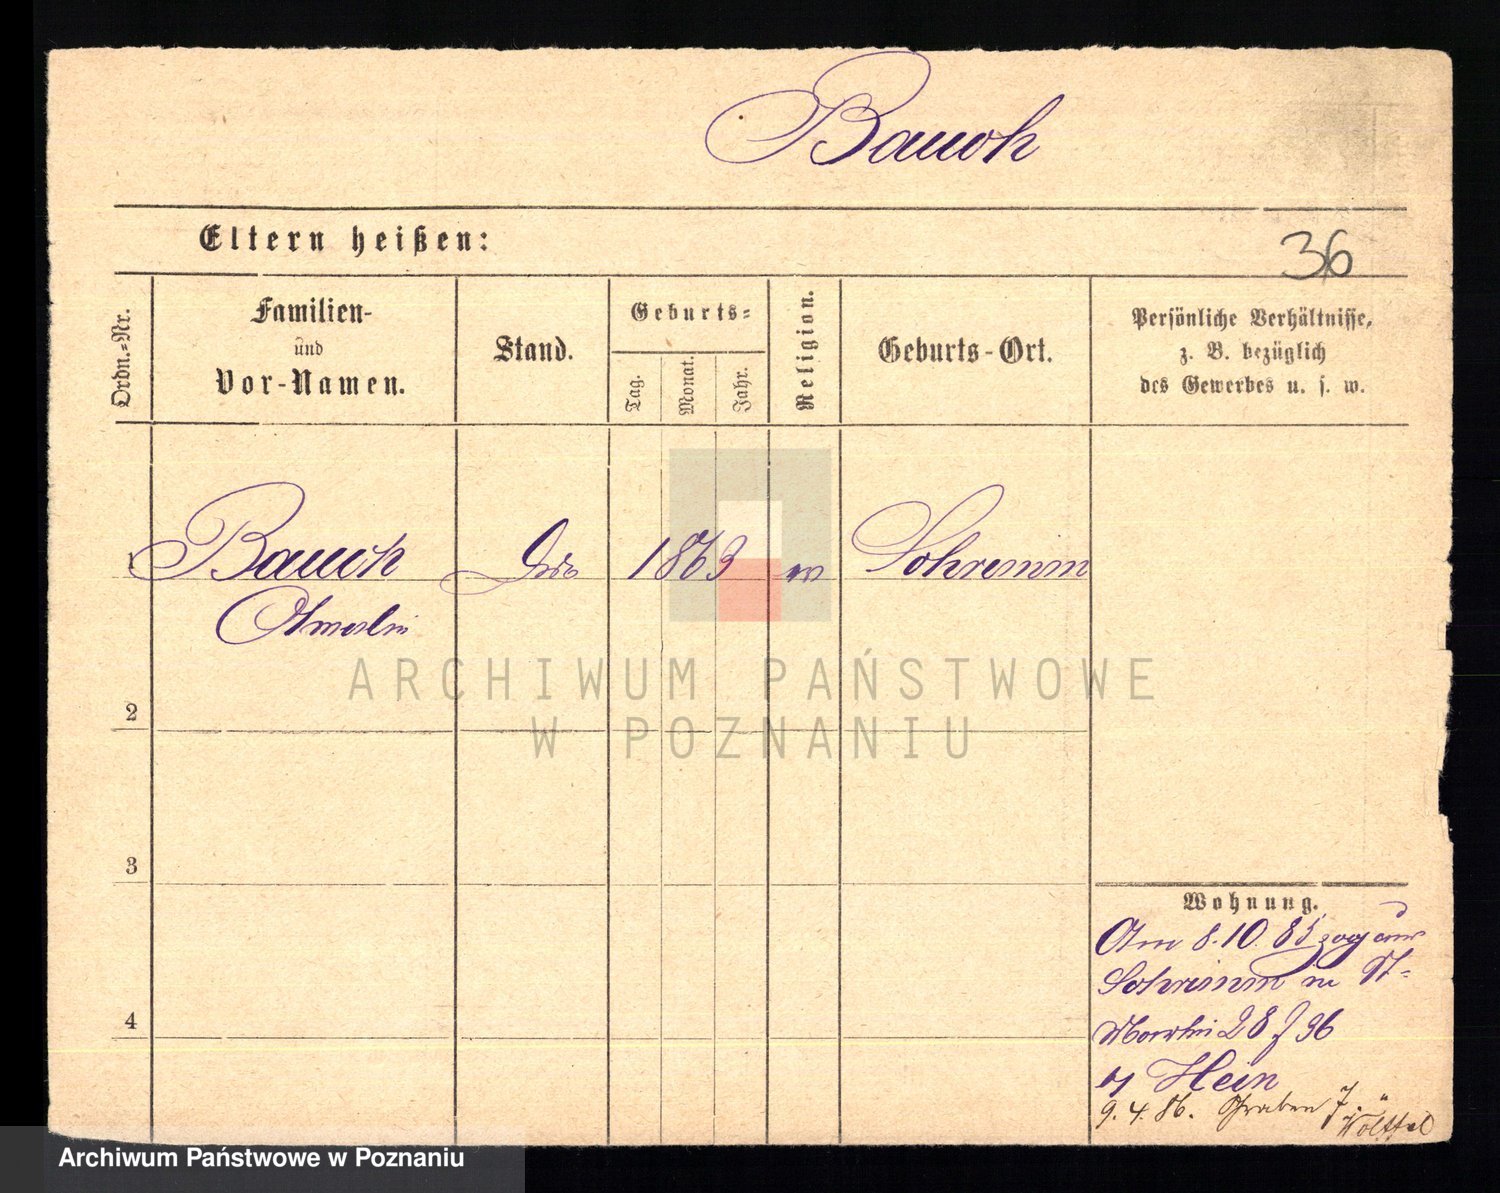 Bauch
Eltern heißen:
36
Ordn.-Nr.
Familien-
und
Vor-Namen.
Stand.
Geburts-
Tag.
Monat.
Jahr.
Religion.
Geburts-Ort.
Persönliche Verhältnisse,
z. B. bezüglich
des Gewerbes u. s. w.
1 Bauch 1863 Schrimm
ARCHIWUM PAŃSTWOWE
W POZNANIU
2
3
4
Wohnung.
Am 8.10.85 zog aus
Schrimm in St.
Martin 28 36
Hein
9.4.86. Graben 7.
Archiwum Państwowe w Poznaniu